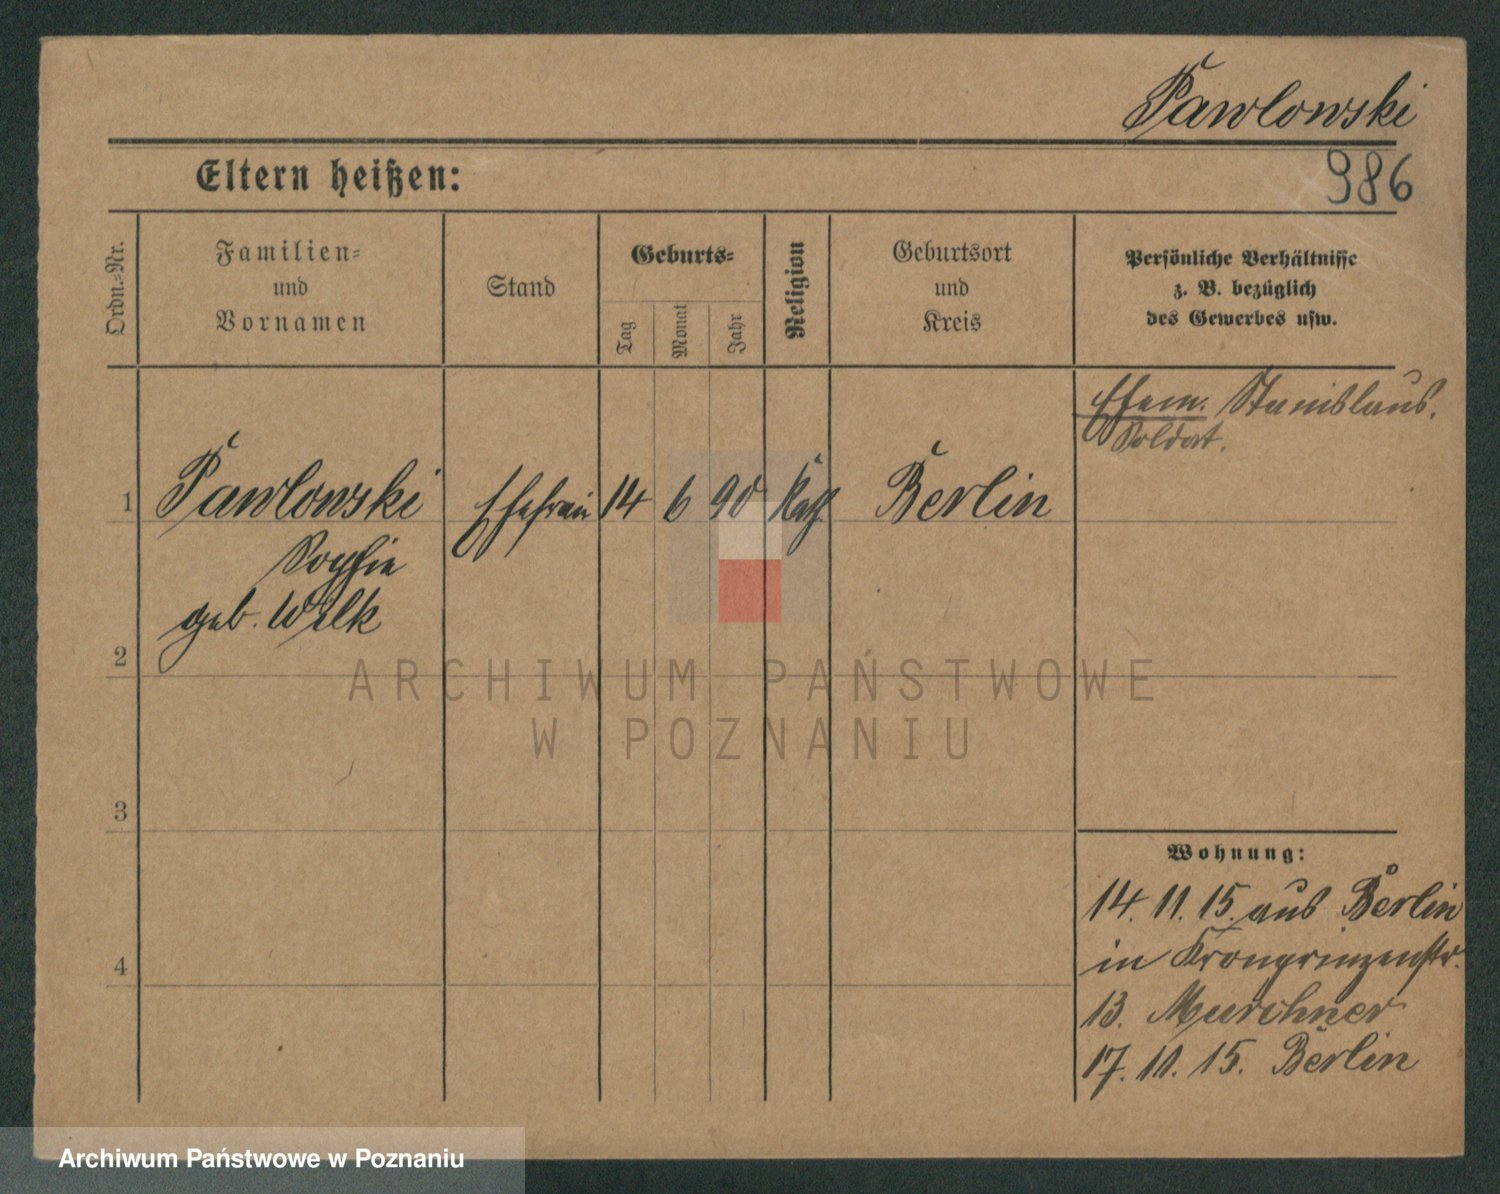 Pawlowski
Eltern heißen:
986
Ordn.-Nr.
Familien-
und
Vornamen
Stand
Geburts-
Tag
Monat
Jahr
Religion
Geburtsort
und
Kreis
Persönliche Verhältnisse
z. B. bezüglich
des Gewerbes usw.
Ehem. Stanislaus.
Soldat.
1 Pawlowski Ehefrau 14 6 90 Kath. Berlin
Sophie
geb. Wilk
2
3
4
Wohnung:
14. 11. 15. aus Berlin
in Kronprinzenstr.
13. Murchner
17. 11. 15. Berlin
ARCHIWUM PAŃSTWOWE
W POZNANIU
Archiwum Państwowe w Poznaniu